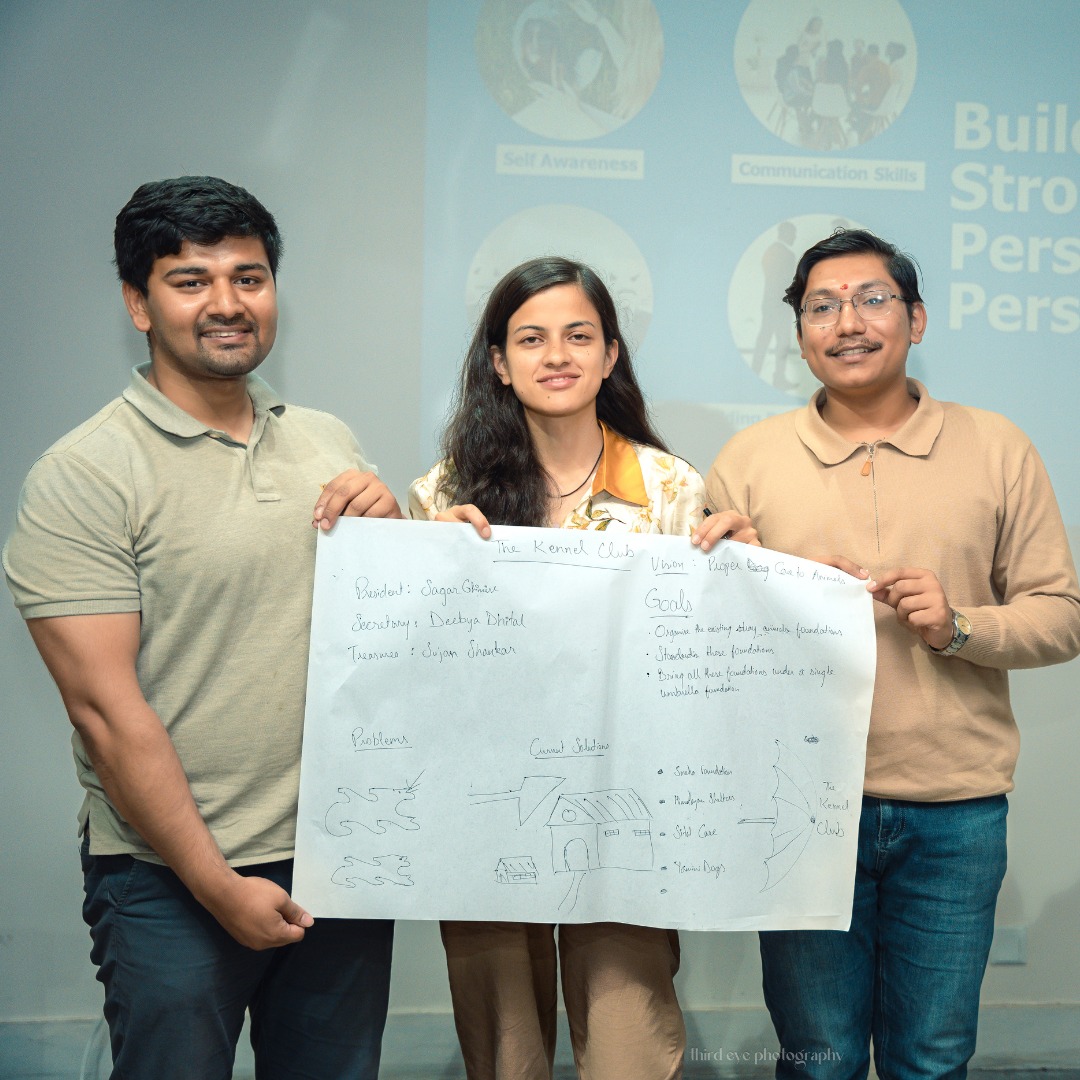 Self Awareness
Communication Skills
Build
Stro
Pers
Pers
The Kennel Club
President : Sagar Ghimire
Secretary : Deebya Dhital
Treasurer : Sujan Shankar
Vision : Proper Care to Animals
Goals
• Organize the existing stray animals foundations
• Standardize these foundations
• Bring all these foundations under a single
umbrella foundation
Problems
Current Solutions
• Sneha Foundation
• Himalayan Shelters
• Street Care
The
Kennel
Club
third eye photography